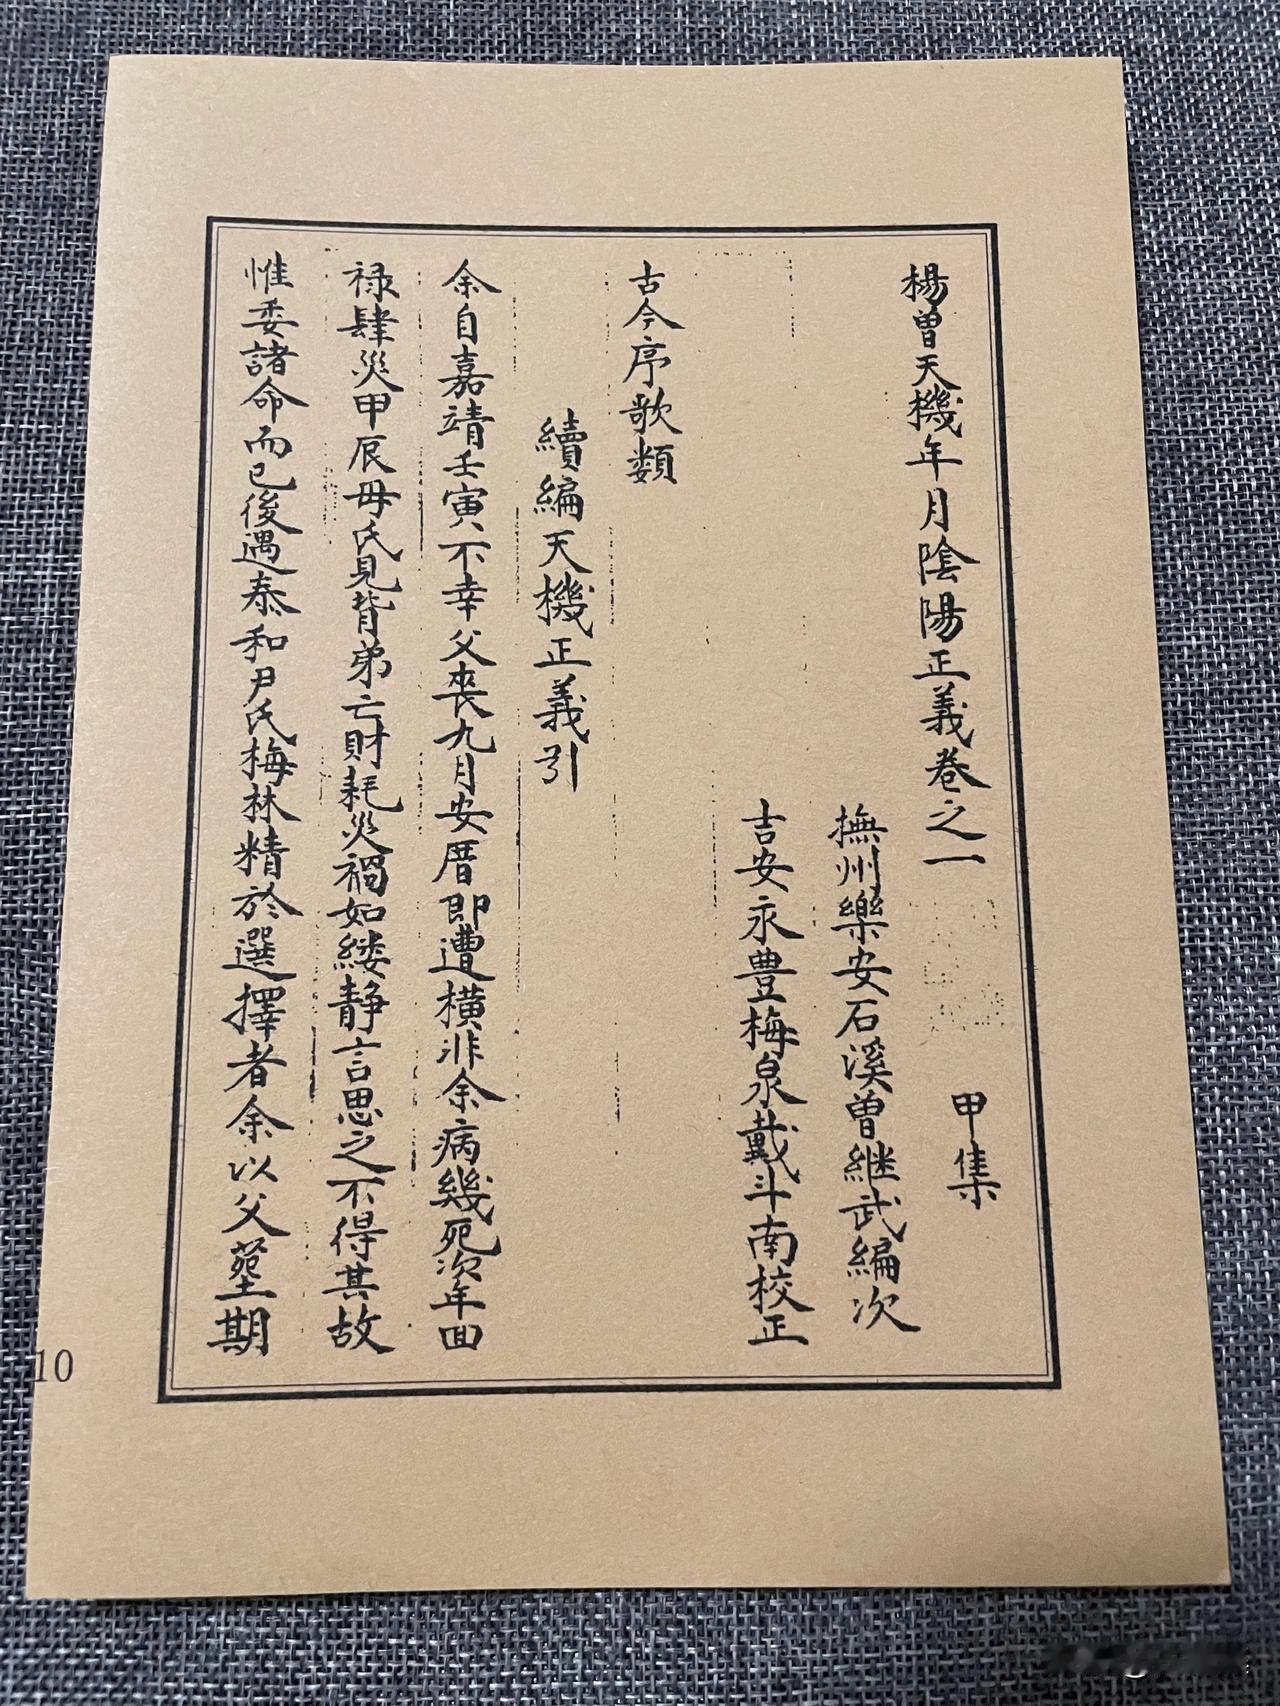 楊曾天機年月陰陽正義卷之一 甲集
撫州樂安石溪曾継武編次
吉安永豊梅泉戴斗南校正
古今序歌類
續編天機正義引
余自嘉靖壬寅不幸父喪九月安厝即遭横非余病幾死次年回
禄肆災甲辰母氏見背弟亡財耗災禍如縷静言思之不得其故
惟委諸命而已後遇泰和尹氏梅林精於選擇者余以父塟期
10